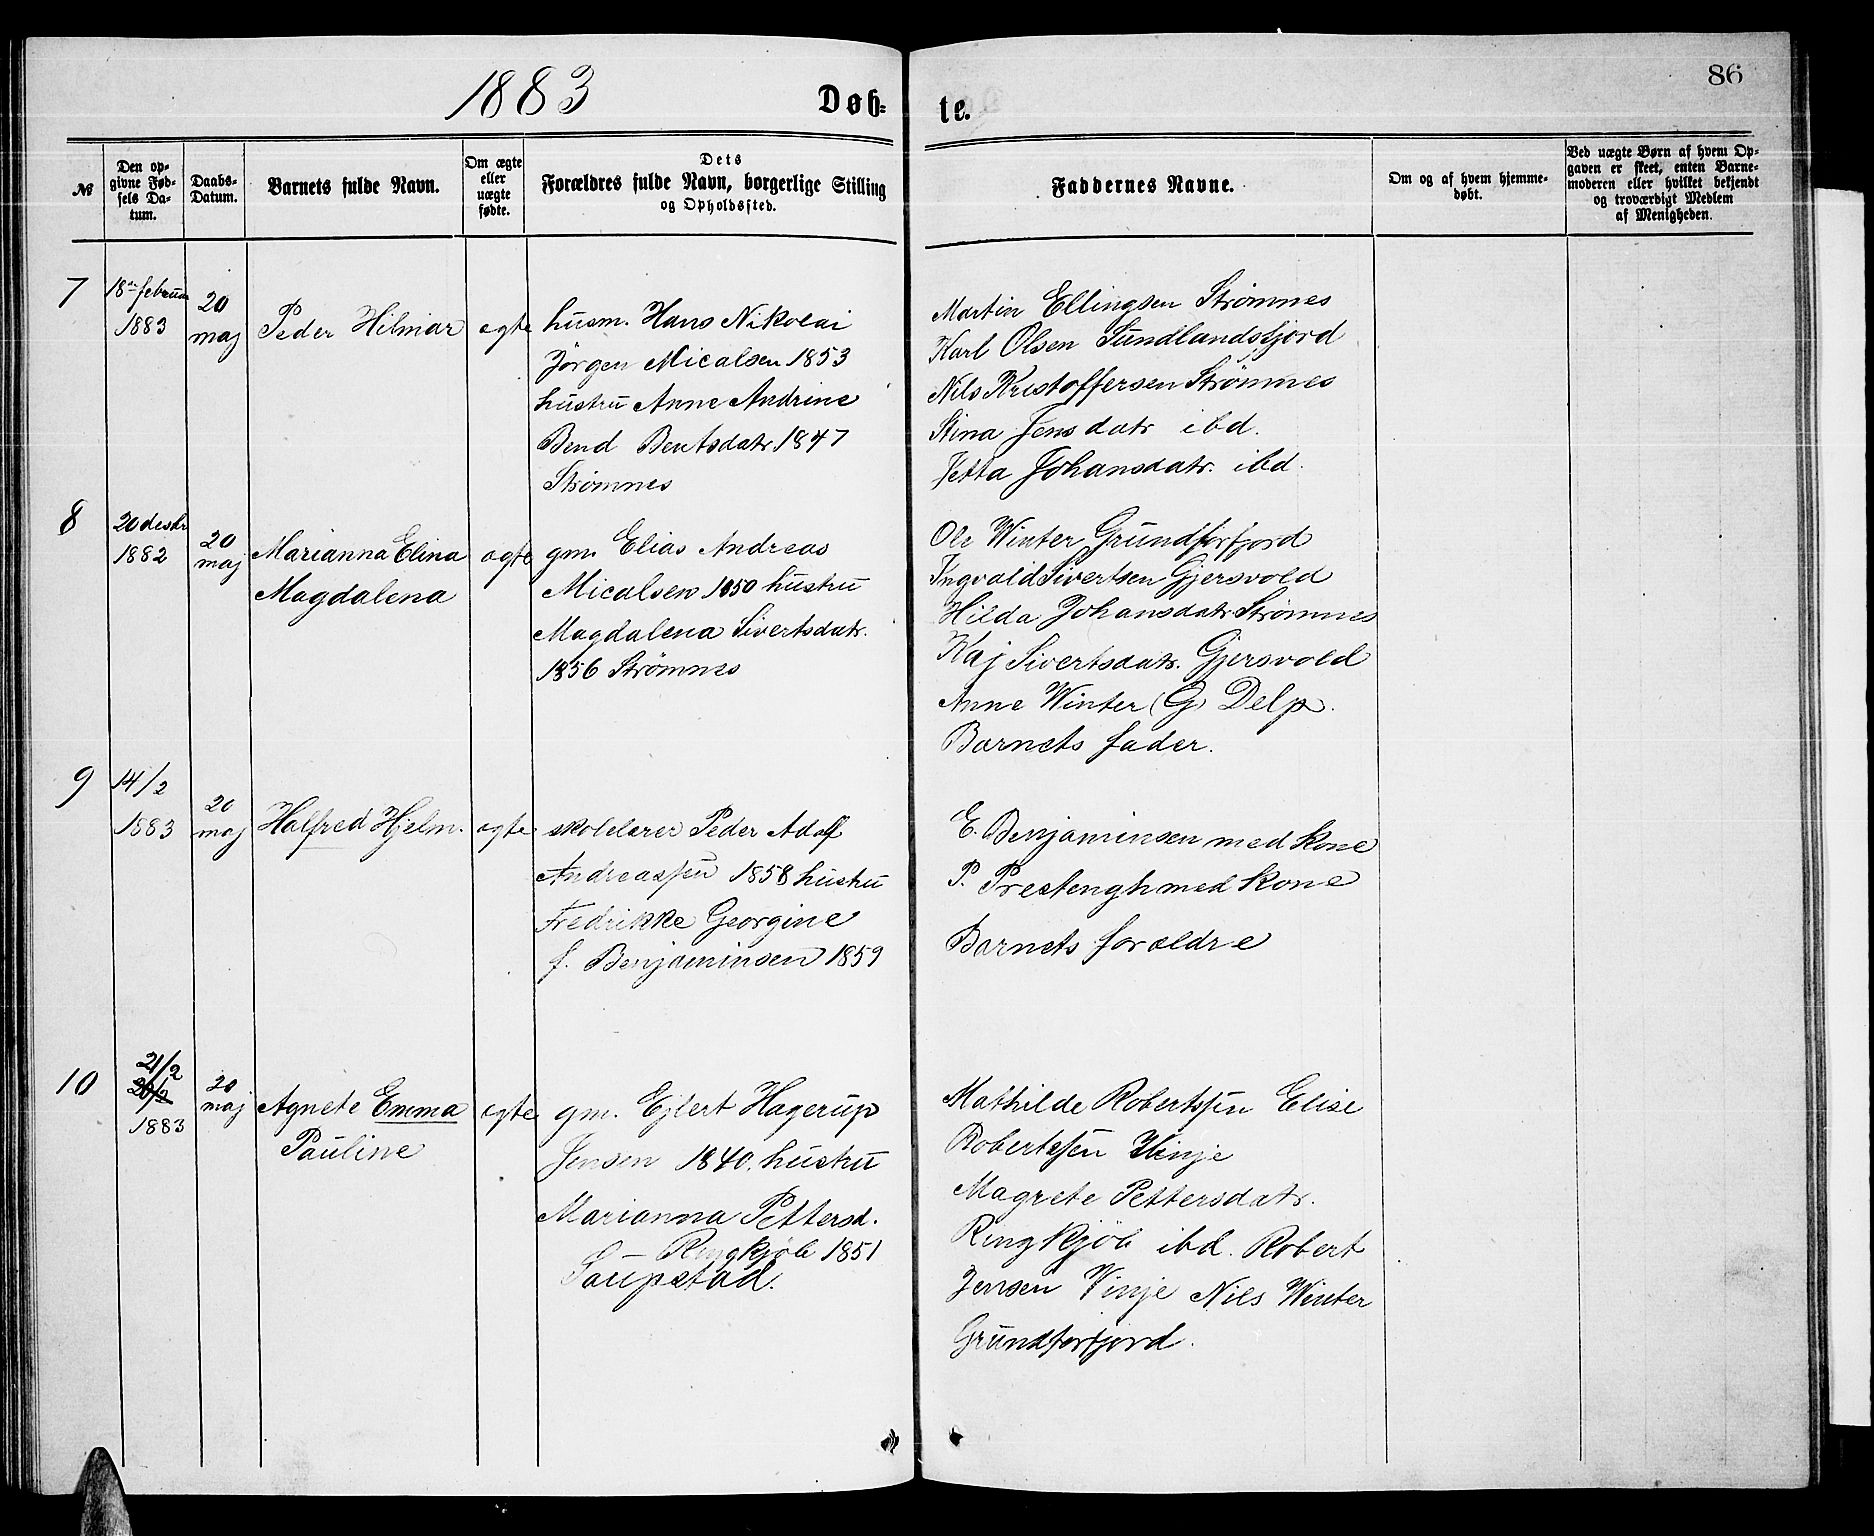 1883
Døb-
te.
86
№
Den op-
givne Fød-
sels Da-
tum.
Daabs-
Datum.
Barnets fulde Navn.
Om ægte
eller
uægte
fødte.
Dets
Forældres fulde Navn, borgerlige Stilling
og Opholdssted.
Faddernes Navne.
Om og af hvem hjemme-
døbt.
Ved uægte Børn af hvem Op-
gaven er skeet, enten Barne-
moderen eller hvilket bekjendt
og troværdigt Medlem
af Menigheden.
7
18de februar
1883
20
maj
Peder Hilmar
egte
husm. Hans Nikolai
Jørgen Micalsen 1853
hustru Anne Andrine
Bend Bentsdatr. 1847
Strømnes
Martin Ellingsen Strømnes
Karl Olsen Sundlandsfjord
Nils Kristoffersen Strømnes
Stina Jensdatr ibd.
Jetta Johansdatr. ibd.
8
20 desbr
1882
20
maj
Marianna Elina
Magdalena
egte
gm. Elias Andreas
Micalsen 1850 hustru
Magdalena Sivertsdatr.
1856 Strømnes
Ole Winter Grundforfjord
Ingvald Sivertsen Gjersvold
Hilda Johansdatr Strømnes
Kaj Sivertsdatr. Gjersvold
Anne Winter (G) Delp.
Barnets fader.
9
14/2
1883
20
maj
Halfred Hjelm.
egte
skolelærer Peder Adolf
Andreassen 1858 hustru
Fredrikke Georgine
f. Benjaminsen 1859
E. Benjaminsen med Kone
P. Prestengh med Kone
Barnets forældre
10
21/2
20/2
1883
20
maj
Agnete Emma
Pauline
egte
gm. Ejlert Hagerup
Jensen 1840. hustru
Marianna Pettersd.
– Ringkjøb 1851
Saupstad.
Mathilde Robertssen Elise
Robertssen Vinje
Magrete Pettersdatr.
Ringkjøb ibd. Robert
Jensen Vinje Nils Winter
Grundforfjord.